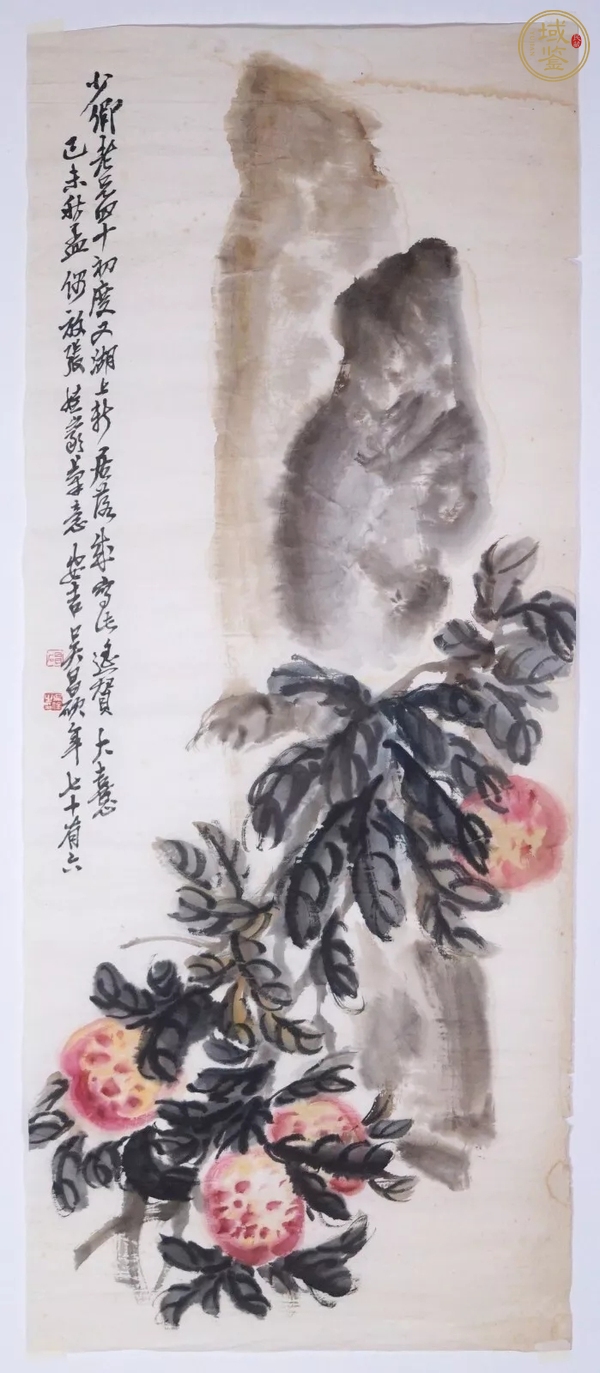 少卿老兄四十初度又湖上新居落成写此遥贺大喜
己未秋孟仿张孟皋笔意安吉吴昌硕年七十有六
域鉴